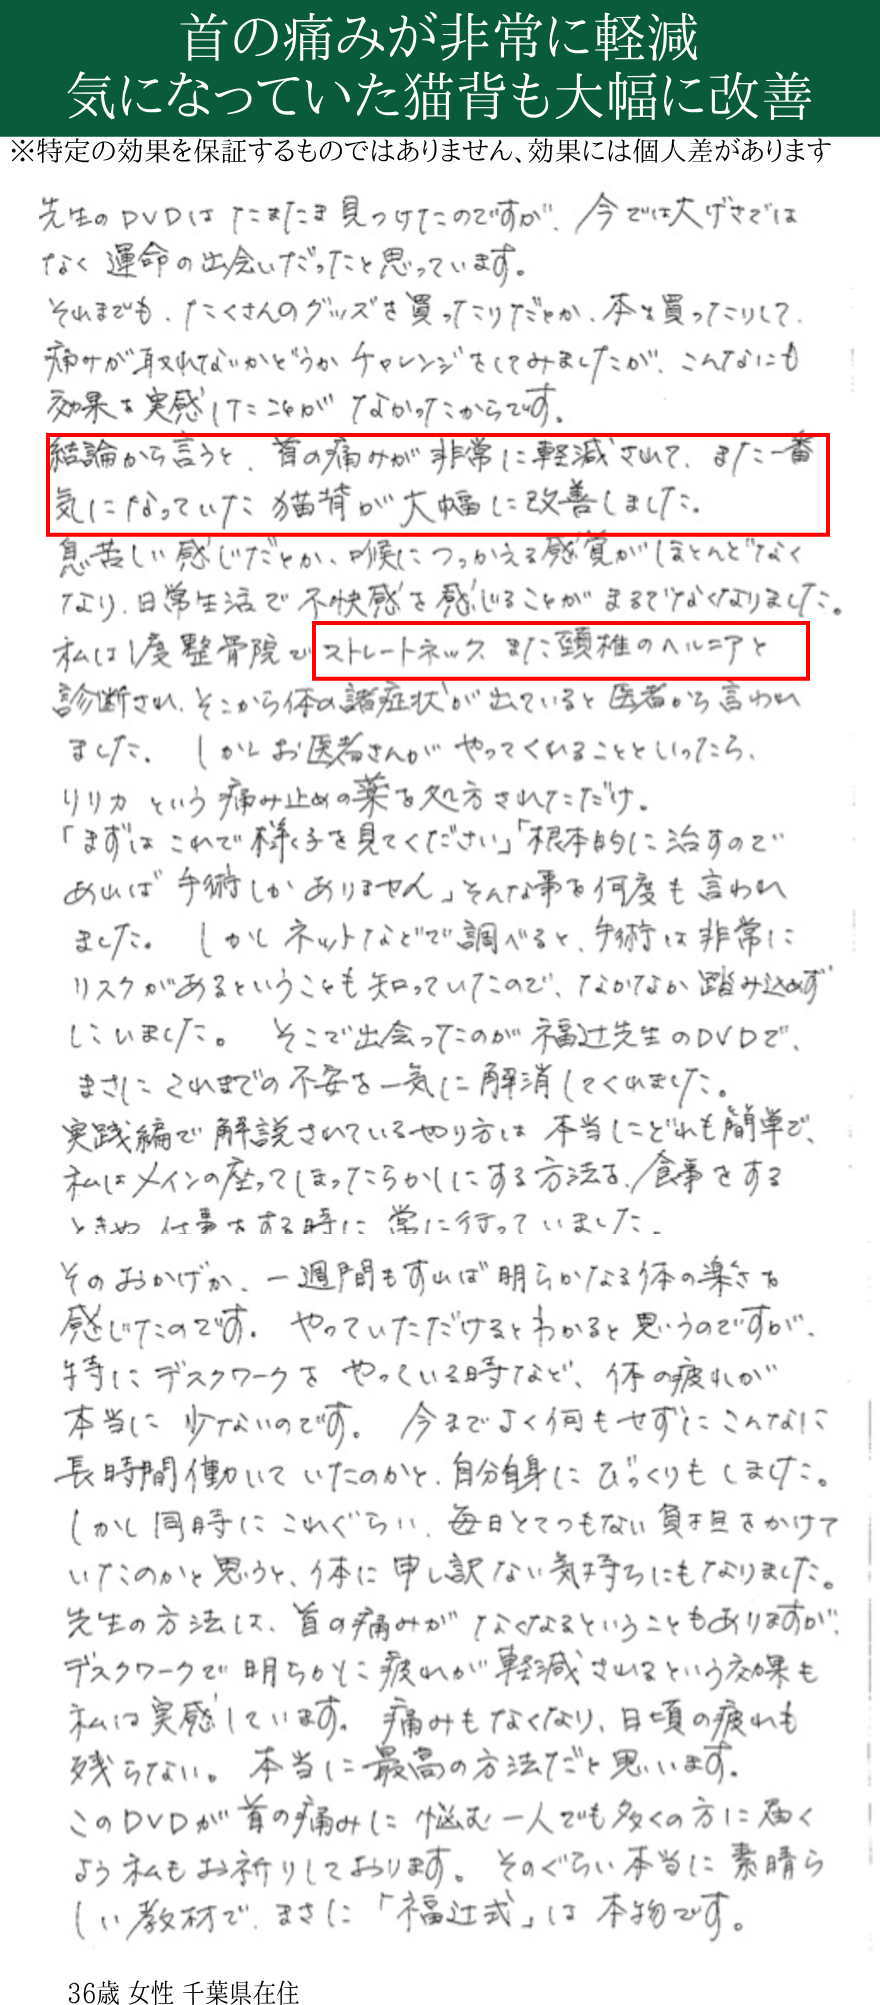 首の痛みが非常に軽減
気になっていた猫背も大幅に改善
※特定の効果を保証するものではありません、効果には個人差があります
先生のDVDは たまたま見つけたのですが、今では大げさでは
なく 運命の出会いだったと思っています。
それまでも、たくさんのグッズを買ったりだとか、本を買ったりして、
痛みが取れないかどうかチャレンジをしてみましたが、こんなにも
効果を実感したことが なかったからです。
結論から言うと、首の痛みが非常に軽減されて、また一番
気になっていた猫背が大幅に改善しました。
息苦しい感じだとか、喉につっかえる感覚がほとんどなく
なり、日常生活で不快感を感じることがまるでなくなりました。
私は1度整骨院でストレートネック、また頚椎のヘルニアと
診断され、そこから体の諸症状が出ていると医者から言われ
ました。 しかしお医者さんが やってくれることといったら、
リリカ という痛み止めの薬を処方されただけ。
「まずは これで様子を見てください」「根本的に治すので
あれば 手術しかありません」そんな事を何度も言われ
ました。 しかし ネットなどで調べると、手術は非常に
リスクがあるということも知っていたので、なかなか踏み込めず
にいました。 そこで出会ったのが福辻先生のDVDで、
まさに これまでの不安を一気に解消してくれました。
実践編で解説されているやり方は 本当にどれも簡単で、
私はメインの座ってしまったらかしにする方法を、食事をする
ときや 仕事をする時に 常に行っていました。
そのおかげか、一週間もすれば明らかなる体の楽さを
感じたのです。 やっていただけるとわかると思うのですが、
特に デスクワークを やっている時など、体の疲れが
本当に 少ないのです。 今までよく何もせずにこんなに
長時間働いていたのかと、自分自身にびっくりもしました。
しかし同時に これぐらい、毎日とてつもない負担をかけて
いたのかと思うと、体に申し訳ない気持ちにもなりました。
先生の方法は、首の痛みが なくなるということもありますが、
デスクワークで明らかに疲れが軽減されるという効果も
私は実感しています。 痛みもなくなり、日頃の疲れも
残らない。 本当に最高の方法だと思います。
このDVDが首の痛みに悩む一人でも多くの方に届く
よう私もお祈りしております。 そのぐらい本当に素晴ら
しい教材で、まさに「福辻式」は本物です。
36歳 女性 千葉県在住